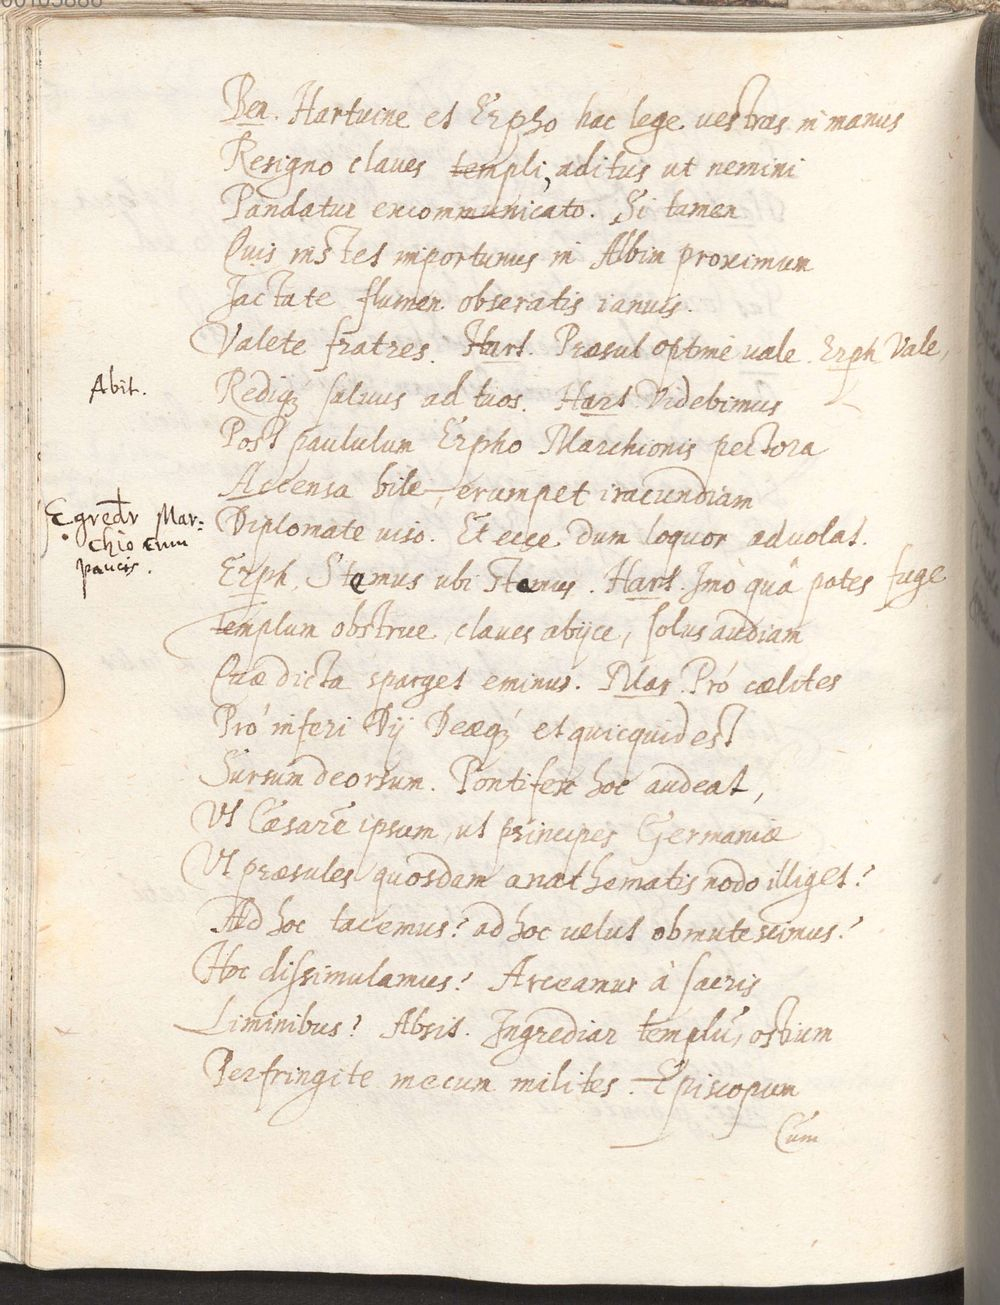 Ben. Hartuine et Erpho hac lege vestras in manus
Resigno claves templi, aditus ut nemini
Pandatur excommunicato. Si tamen
Quis instet importunus in Albim proximum
Jactate flumen obseratis ianuis.
Valete fratres. Hart. Præsul optime vale. Erph. Vale,
Abit.
Rediq; salvus ad tuos. Hart. Videbimus
Post paululum Erpho Marchionis pectora
Accensa bile, erumpet iracundiam
Egredr Mar=
chio cum
paucis.
Diplomate viso. Et ecce dum loquor advolat.
Erph. Stamus ubi stamus. Hart. Jmò quâ potes fuge
Templum obstrue, claves abijce, solus audiam
Quæ dicta sparget eminus. Mar. Prò cælites
Prò inferi Dij Deæq; et quicquid est
Sursum deorsum. Pontifex hoc audeat,
Ut Cæsarē ipsum, ut principes Germaniæ
Ut præsules quosdam anathematis nodo illiget?
Ad hoc tacemus? ad hoc velut obmutescimus?
Hoc dissimulamus? Arceamur à sacris
Liminibus? Absit. Ingrediar templū, ostium
Perfringite mecum milites. Episcopum
Cum